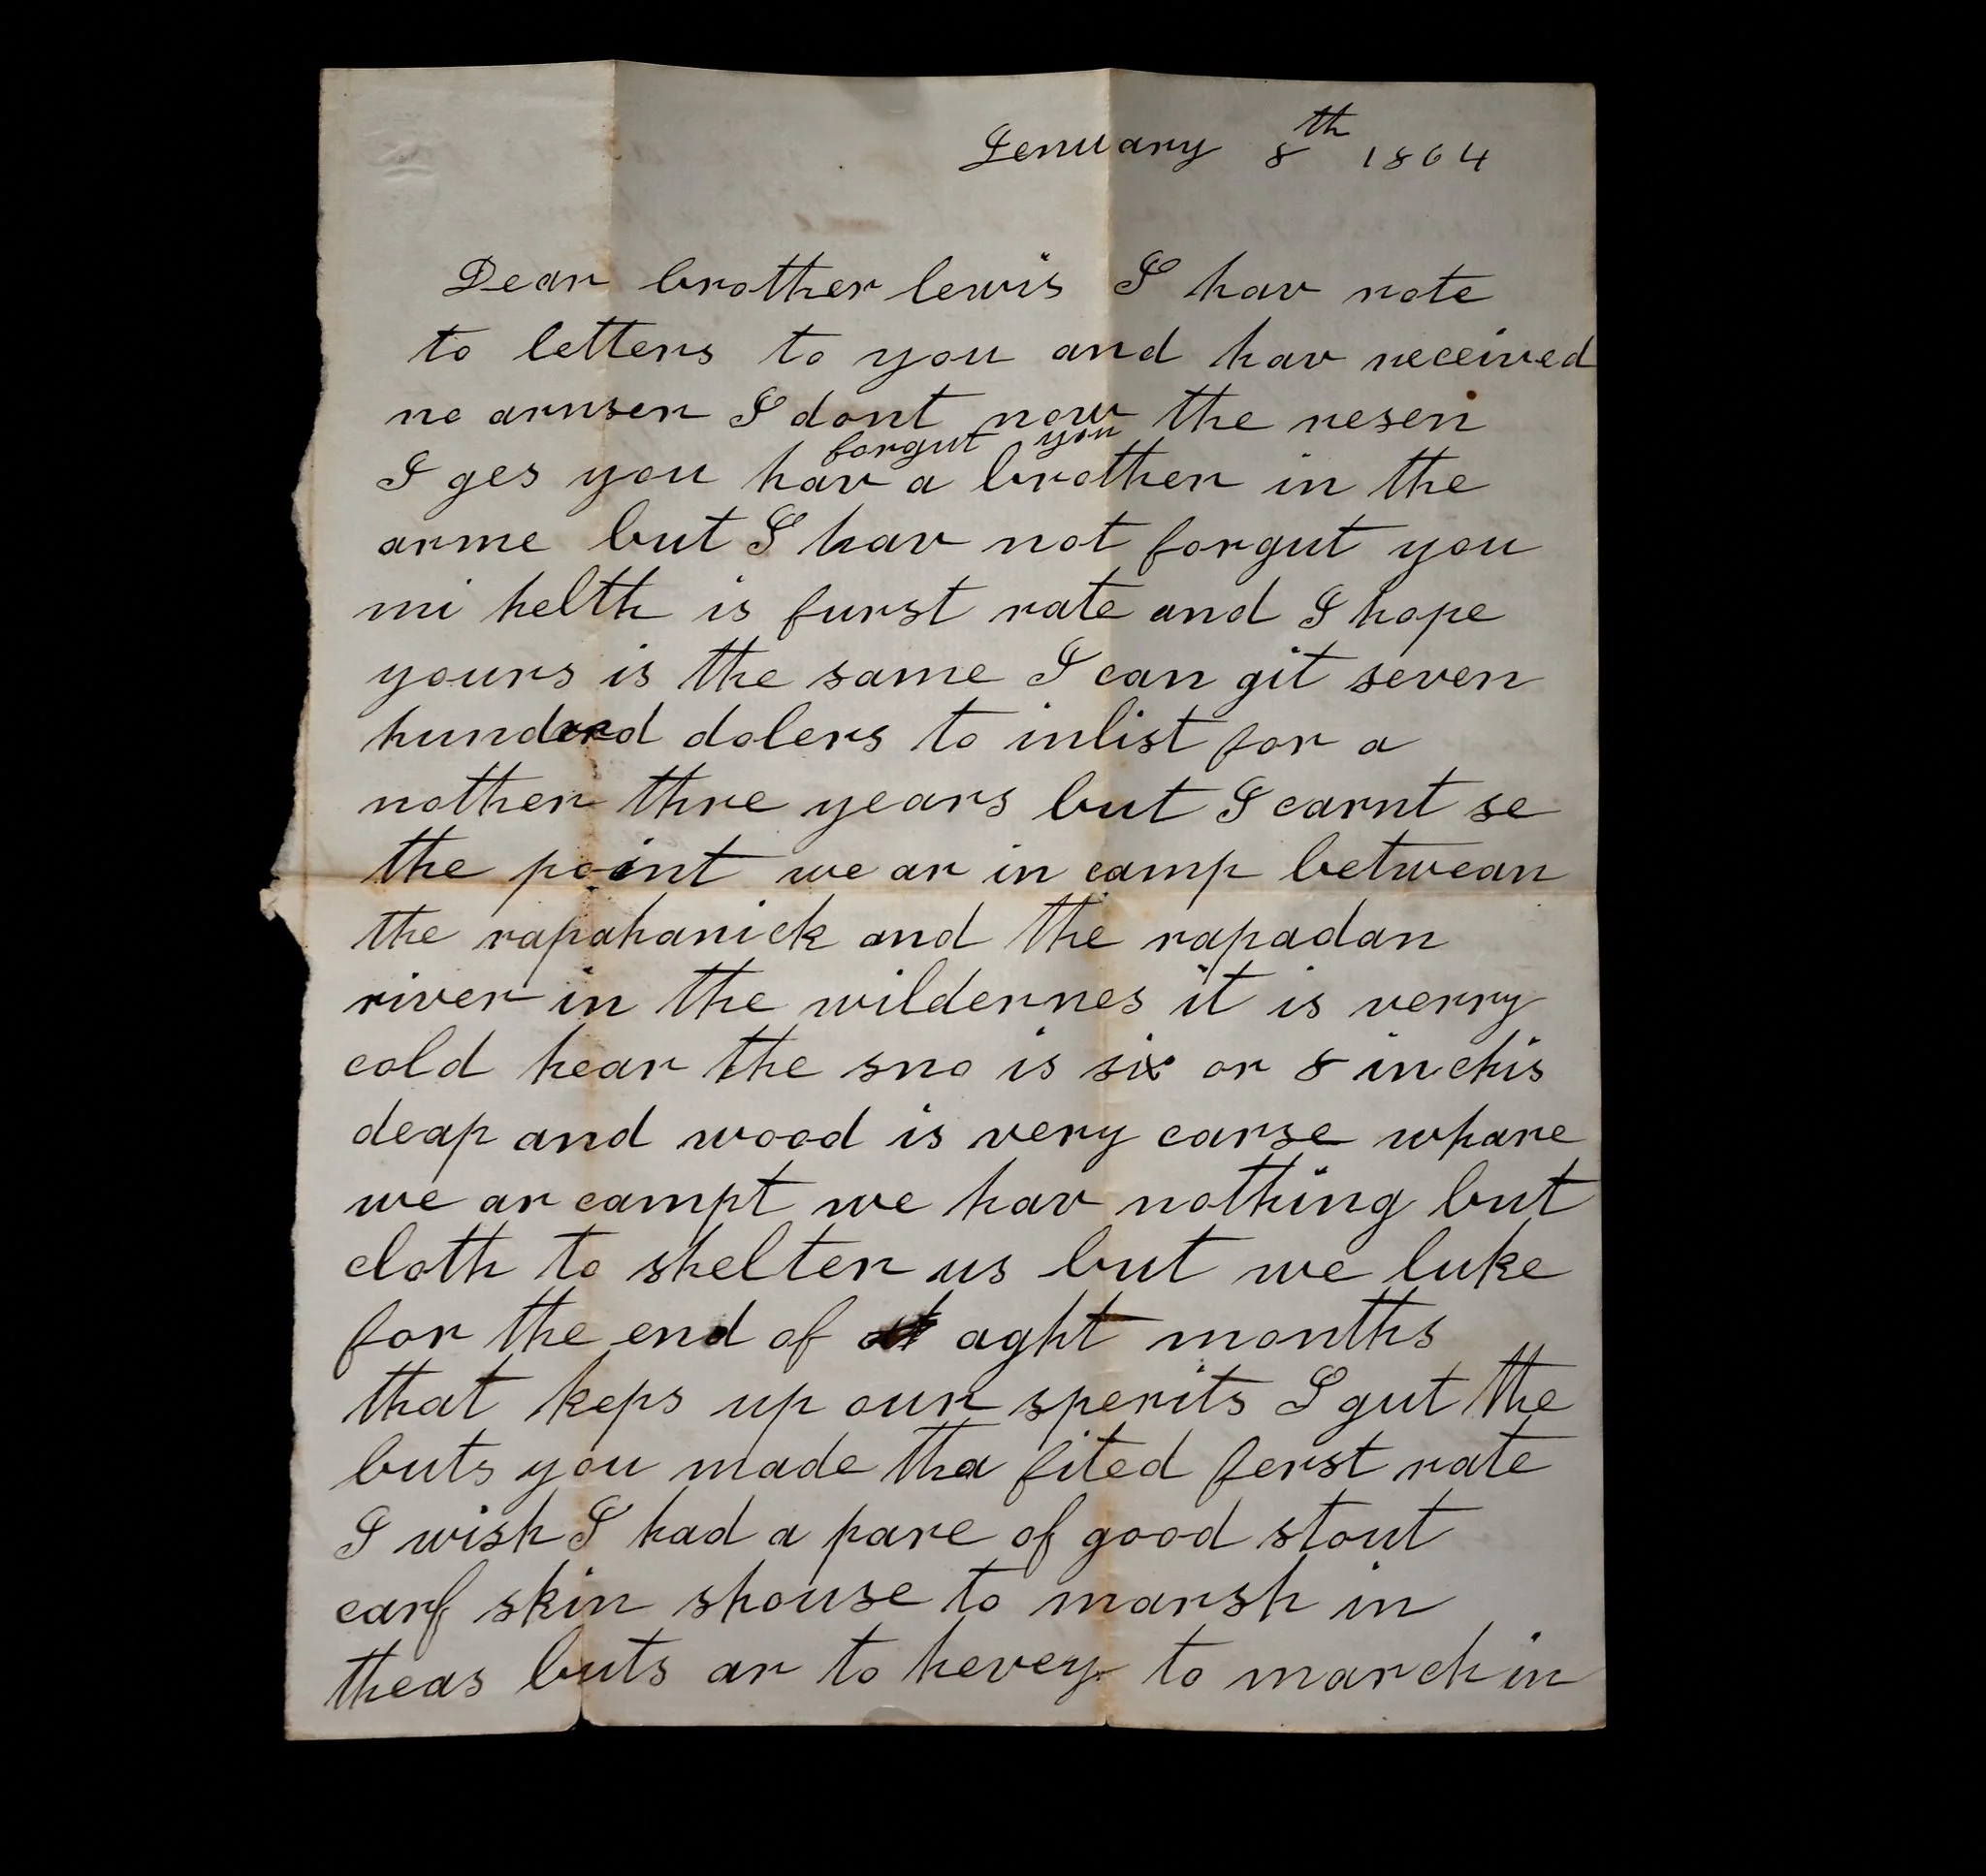 Jenuary 8th 1864
Dear brother lewis I hav rote
to letters to you and hav received
no arnser I dont now the resen
forgut you
I ges you hav a brother in the
arme but I hav not forgut you
mi helth is furst rate and I hope
yours is the same I can git seven
hunderd dolers to inlist for a
nother thre years but I carnt se
the point we ar in camp betwean
the rapahanick and the rapadan
river in the wildernes it is verry
cold hear the sno is six or 8 inchis
deap and wood is very carse whare
we ar campt we hav nothing but
cloth to shelter us but we luke
for the end of aght months
that keps up our sperits I gut the
buts you made tha fited ferst rate
I wish I had a pare of good stout
carf skin shouse to marsh in
theas buts ar to hevey to march in